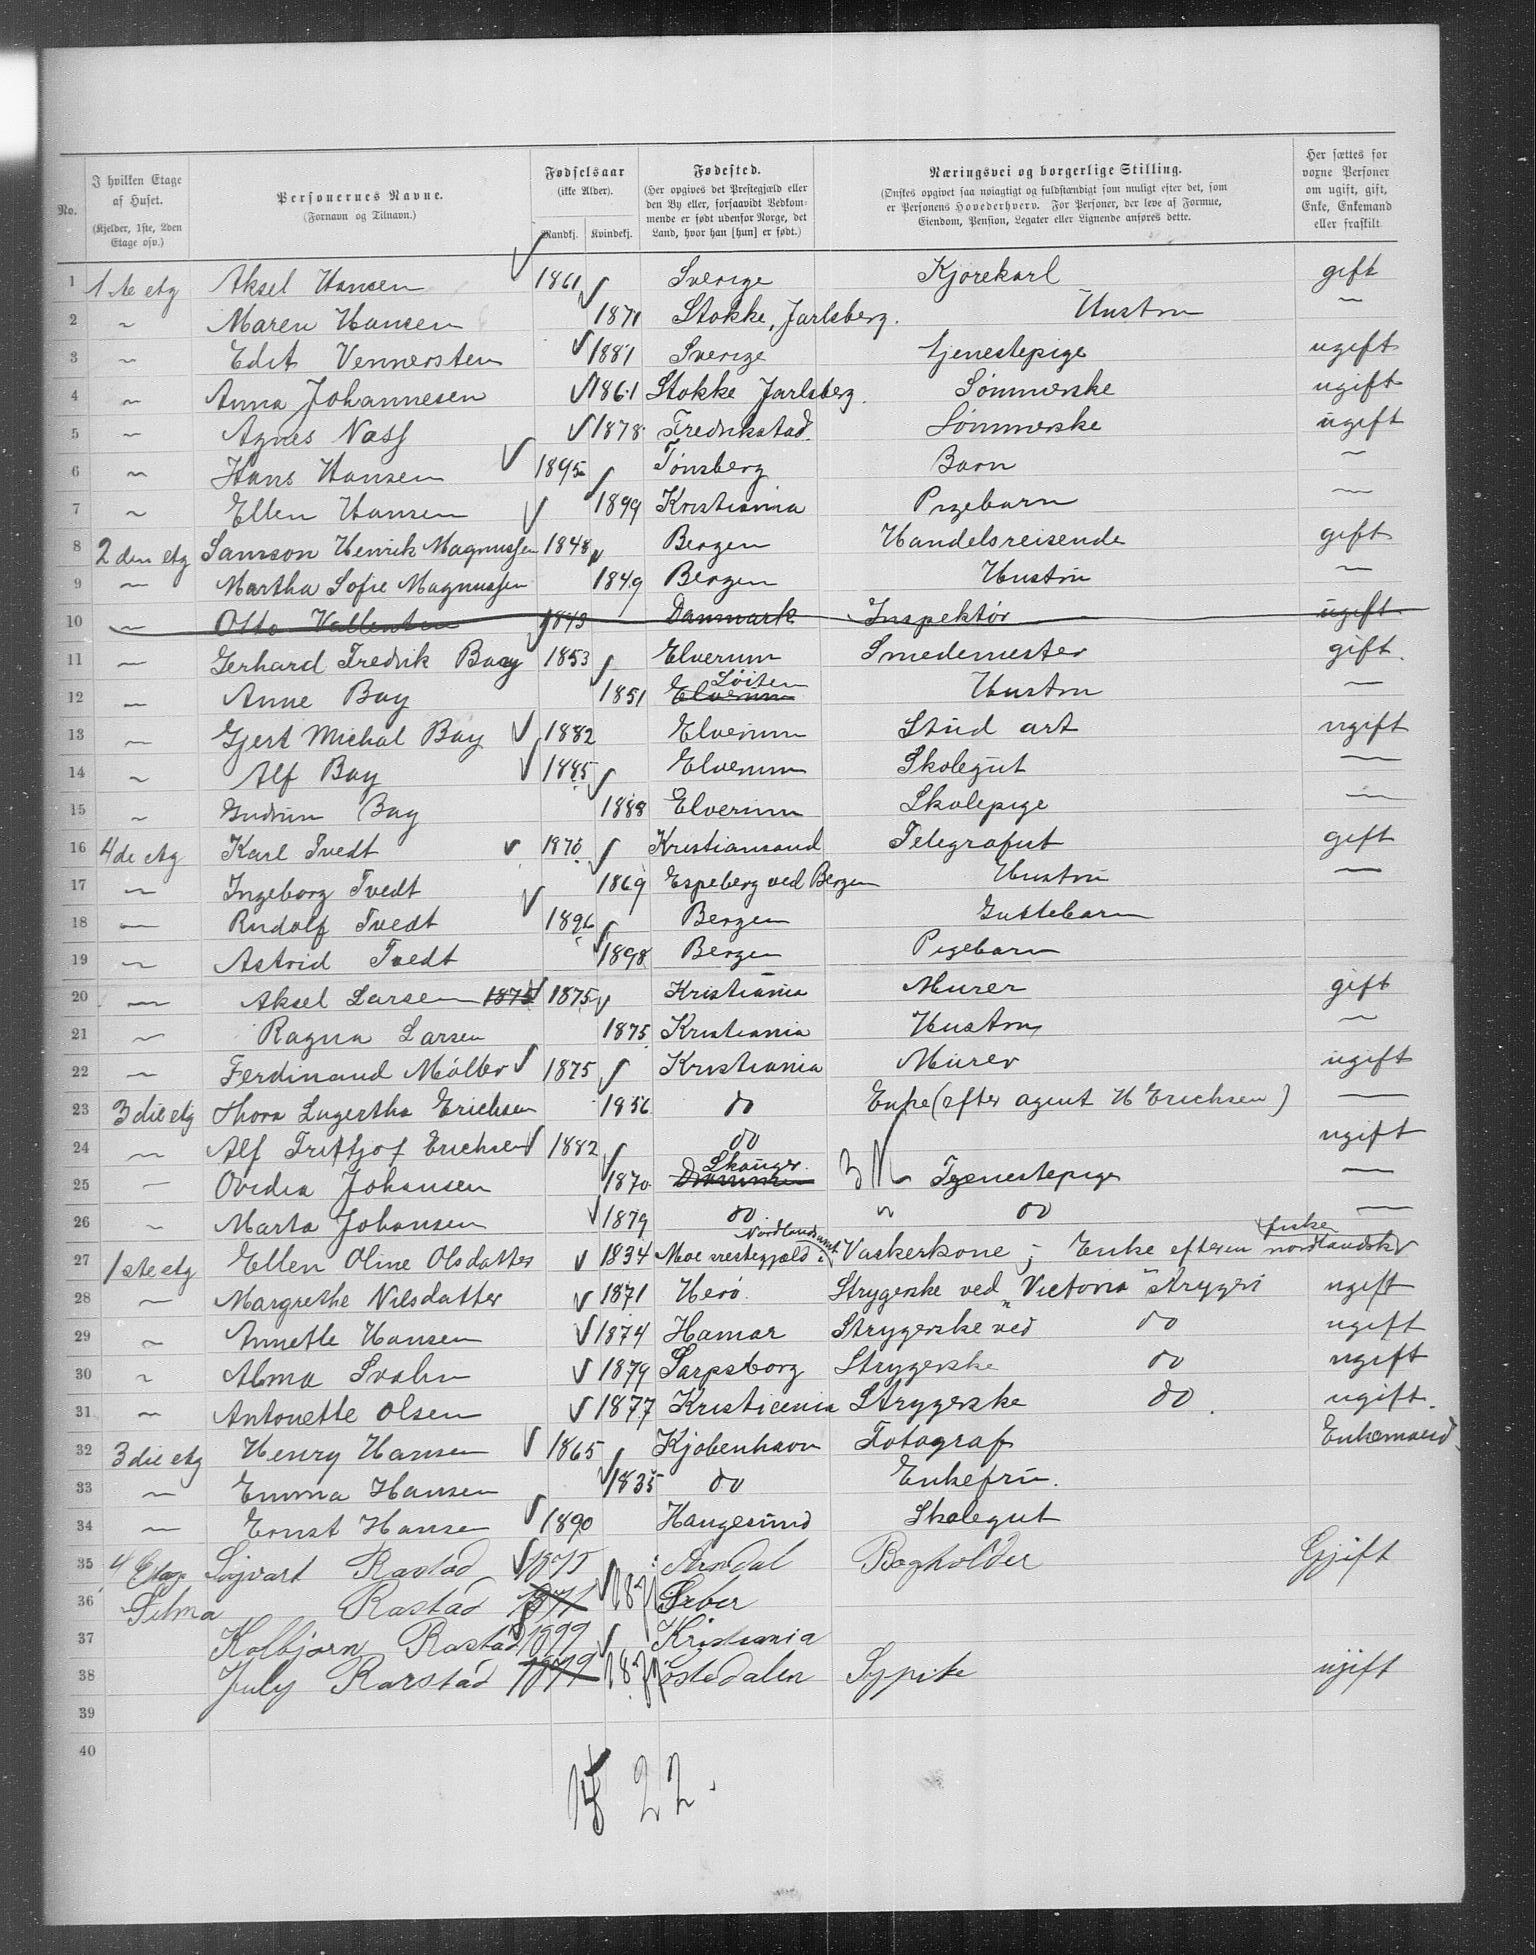 No. I hvilken Etage af Huset. (Kjelder, 1ste, 2den Etage osv.) Personernes Navne. (Fornavn og Tilnavn.) Fødselsaar (ikke Alder). Mandkj. Kvindekj. Fødested. (Her opgives det Prestegjæld eller den By eller, forsaavidt Vedkommende er født udenfor Norge, det Land, hvor han [hun] er født.) Næringsvei og borgerlige Stilling. (Ønskes opgivet saa nøiagtigt og fuldstændigt som muligt efter det, som er Personens Hovederhverv. For Personer, der leve af Formue, Eiendom, Pension, Legater eller Lignende anføres dette.) Her sættes for vorne Personer om ugift, gift, Enke, Enkemand eller fraskilt
1 1ste etg Aksel Hansen 1861 Sverige Kjørekarl gift
2 " Maren Hansen 1871 Stokke, Jarlsberg. Hustru —
3 " Edit Vennersten 1881 Sverige tjenestepige ugift
4 " Anna Johannesen 1861 Stokke Jarlsberg. Sømmerske ugift
5 " Agnes Næss 1878 Fredrikstad. Sømmerske ugift
6 " Hans Hansen 1895 Tønsberg Barn —
7 " Ellen Hansen 1899 Kristiania Pigebarn —
8 2den etg Samson Henrik Magnussen 1848 Bergen Handelsreisende gift
9 " Martha Sofie Magnussen 1849 Bergen Hustru —
10 " Otto Vallentin 1843 Danmark Inspektør ugift
11 " Gerhard Fredrik Bay 1853 Elverum Smedemester gift.
12 " Anne Bay 1851 Elverum Løiten Hustru —
13 " Gjert Michal Bay 1882 Elverum Stud art ugift
14 " Alf Bay 1885 Elverum Skolegut —
15 " Gudrun Bay 1888 Elverum Skolepige —
16 4de etg Karl Tvedt 1870 Kristiansand Telegrafist gift
17 " Ingeborg Tvedt 1869 Espeberg ved Bergen Hustru —
18 " Rudolf Tvedt 1896 Bergen Guttebarn
19 " Astrid Tvedt 1898 Bergen Pigebarn
20 " Aksel Larsen 1875 1875 Kristiania Murer gift
21 " Ragna Larsen 1875 Kristiania Hustru —
22 " Ferdinand Møller 1875 Kristiania Murer ugift
23 3die etg Thora Lagertha Erichsen 1856 do Enke (efter agent H Erichsen) —
24 " Alf Fritjof Erichsen 1882 do ugift
25 " Ovidia Johansen 1870 Drammen Skouger. Tjenestepige —
26 " Marta Johansen 1879 do. " do —
27 1ste etg Ellen Oline Olsdatter 1834 Moe prestegjæld i Nordlandsamt Vaskerkone; Enke efter en nordlandsk fisker
28 " Margrethe Nilsdatter 1871 Herø. Strygerske ved "Victoria" strygeri ugift
29 " Annette Hansen 1874 Hamar Strygerske ved do ugift
30 " Alma Svalin 1879 Sarpsborg Strygerske do ugift
31 " Antonette Olsen 1877 Kristiania Strygerske do. ugift.
32 3die etg Henry Hansen 1865 Kjøbenhavn Fotograf Enkemand
33 " Emma Hansen 1835 do Enkefru.
34 " Ernst Hansen 1890 Haugesund Skolegut
35 4 Etage Sigvart Rastad 1875 Arendal Bogholder Gjift
36 Selma Rastad 1871
37 Kolbjørn Rastad 1899 Kristiania
38 July Rarstad 1879 Østedalen Sypike ugift
39
40
22.